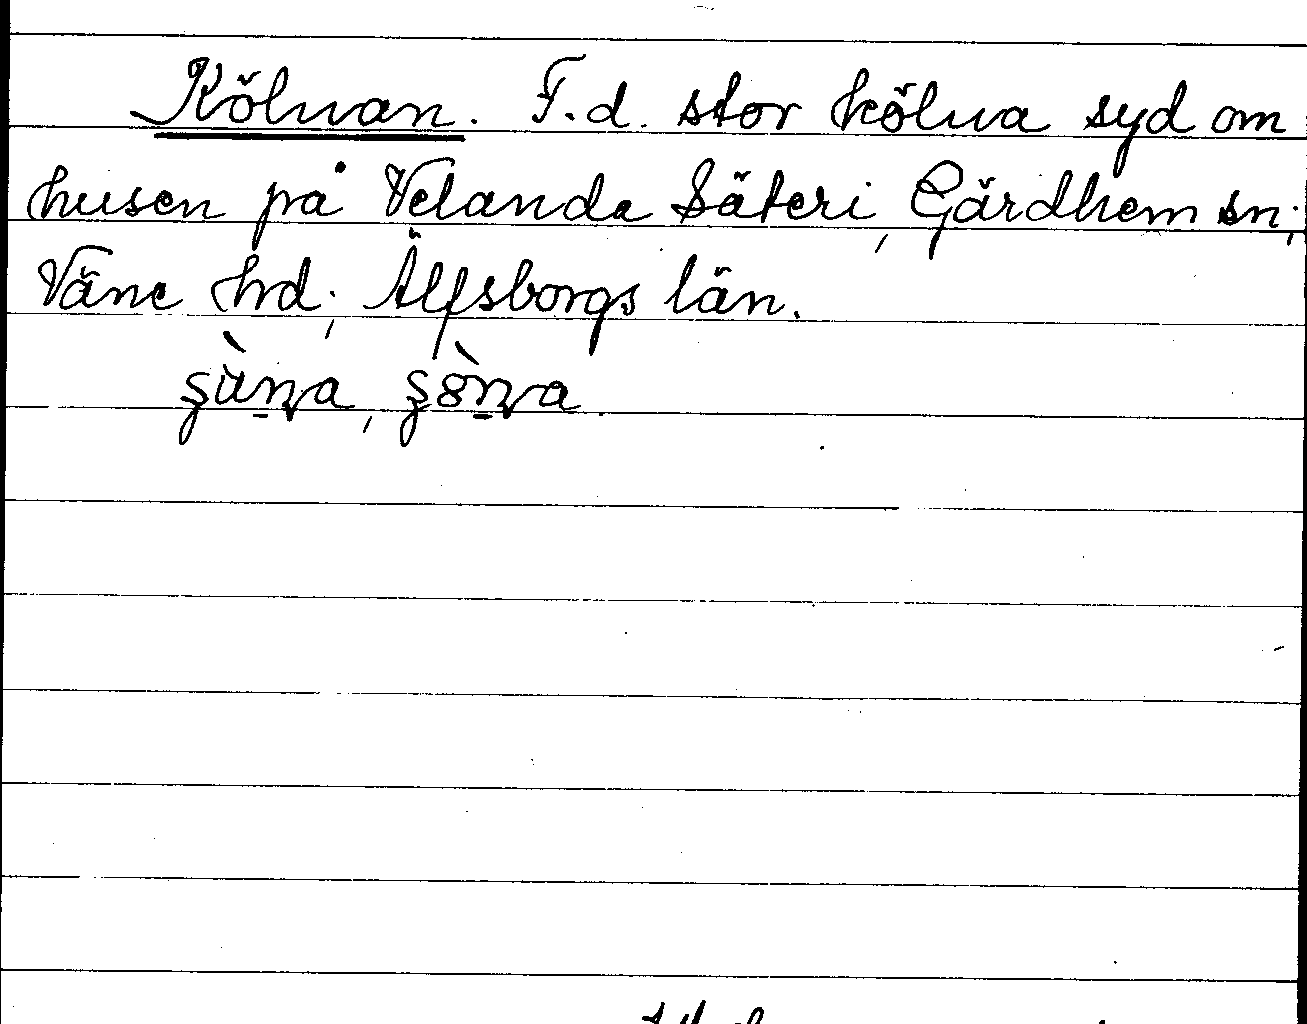 Kölnan. F.d. stor kölna syd om
husen på Velanda Säteri, Gärdhem sn;
Väne hd; Älfsborgs län.